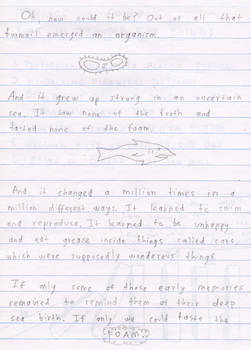 Oh, how could it be? Out of all that
turmoil emerged an organism.
And it grew up strong in an uncertain
sea. It saw none of the froth and
tasted none of the foam.
And it changed a million times in a
million different ways. It learned to swim
and reproduce. It learned to be unhappy
and eat grease inside things called cars,
which were supposedly wonderous things.
If only some of those early memories
remained to remind them of their deep
sea birth. If only we could taste the
FOAM.